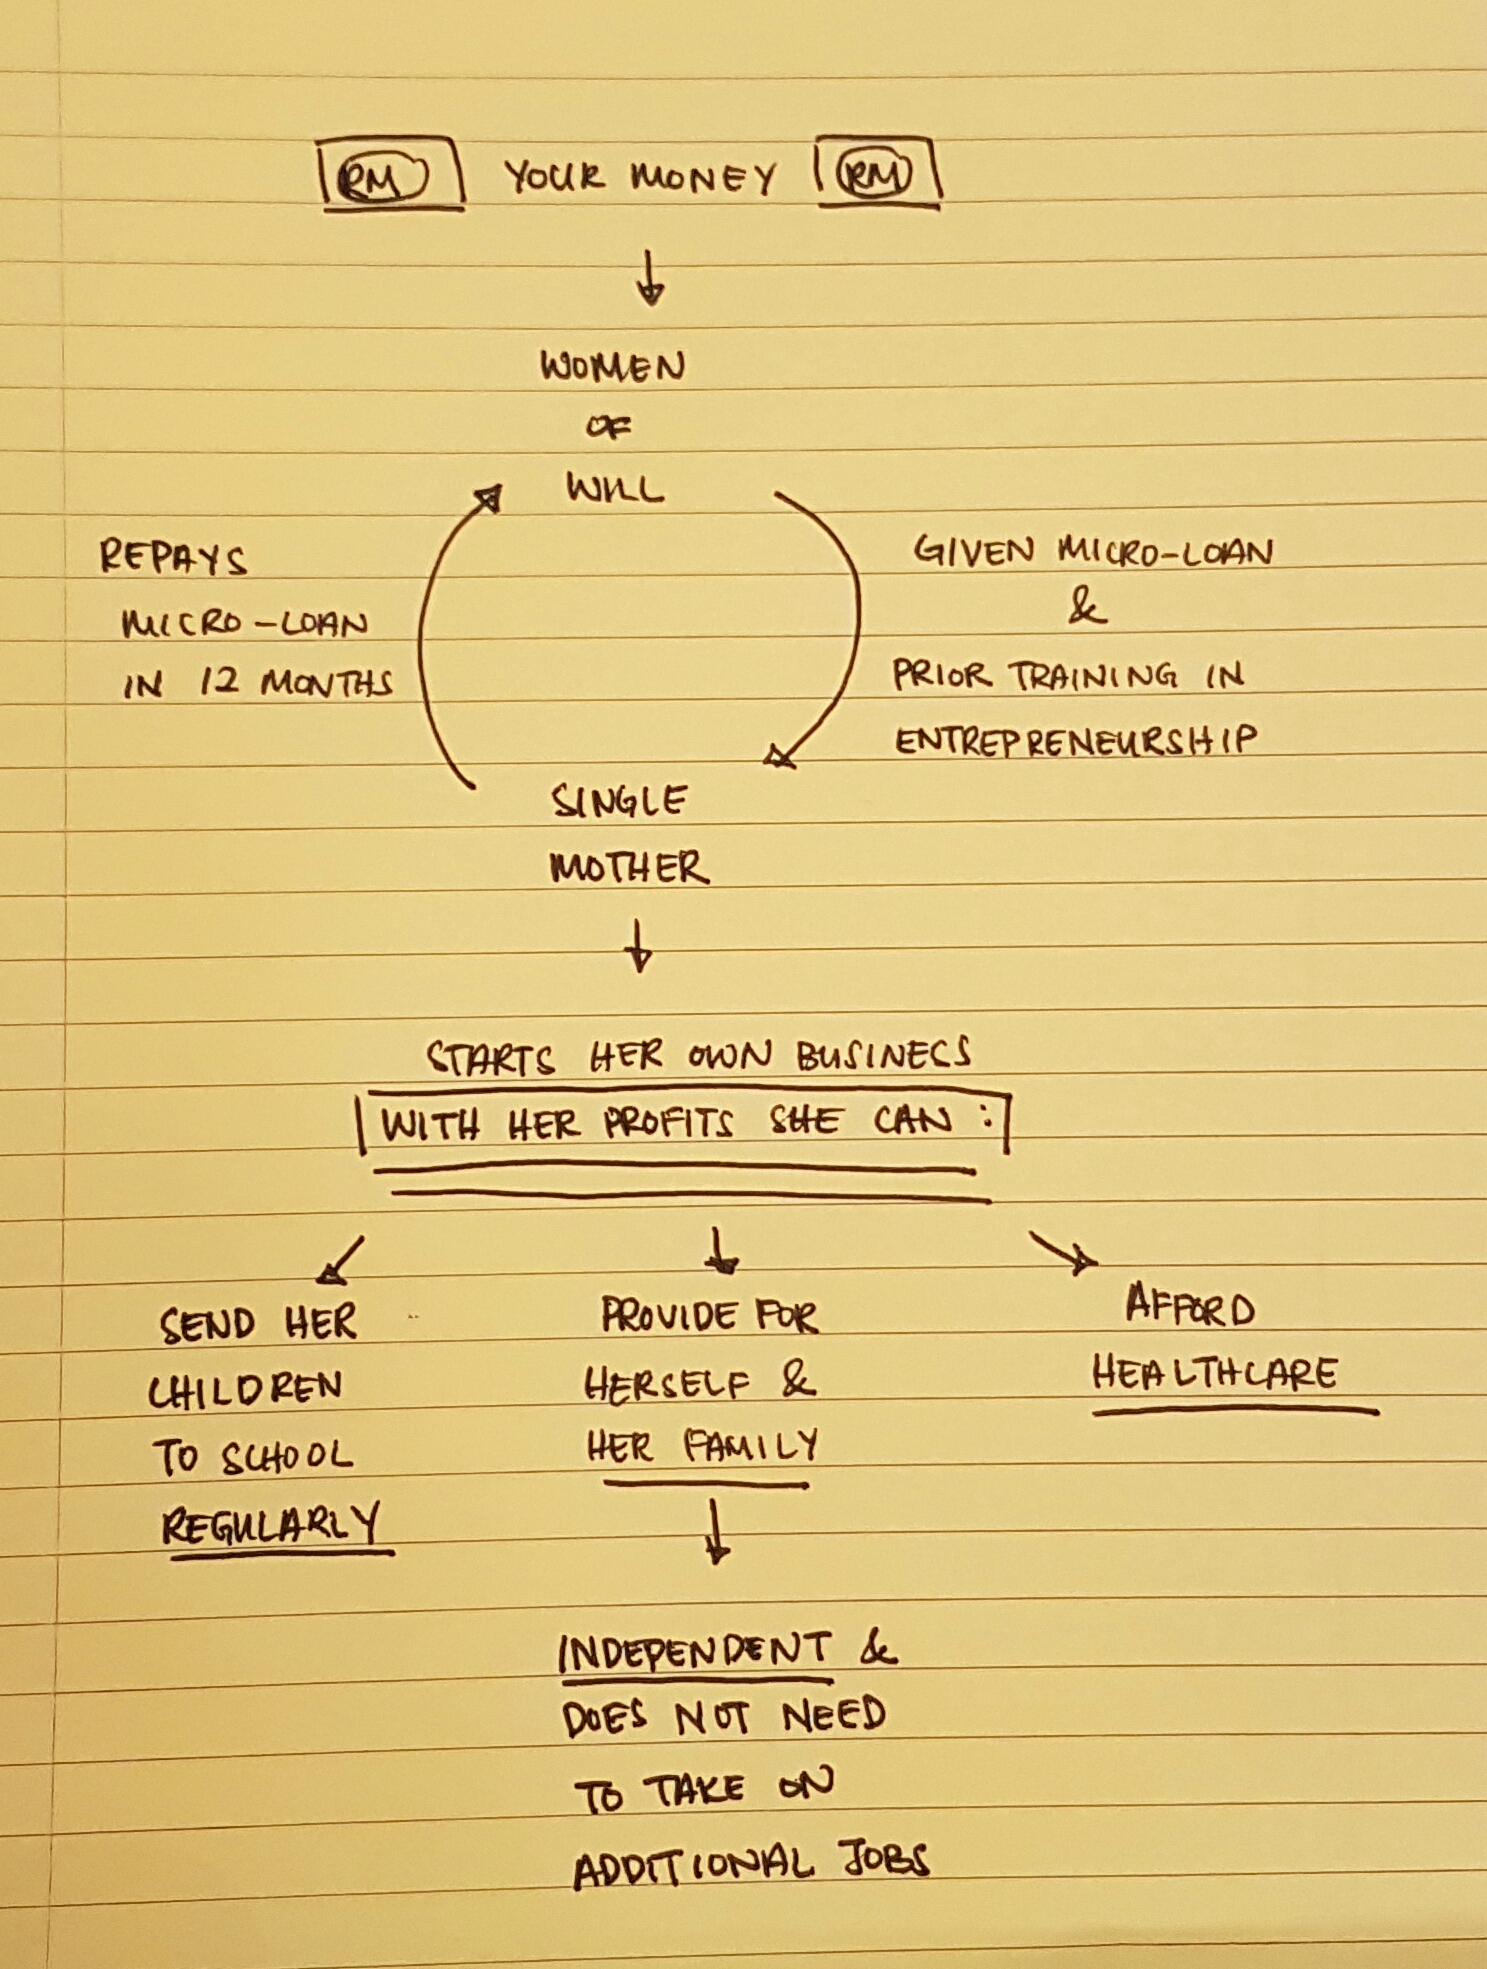 RM YOUR MONEY RM
WOMEN
OF
WILL
REPAYS
MICRO-LOAN
IN 12 MONTHS
GIVEN MICRO-LOAN
&
PRIOR TRAINING IN
ENTREPRENEURSHIP
SINGLE
MOTHER
STARTS HER OWN BUSINESS
WITH HER PROFITS SHE CAN :
SEND HER
CHILDREN
TO SCHOOL
REGULARLY
PROVIDE FOR
HERSELF &
HER FAMILY
AFFORD
HEALTHCARE
INDEPENDENT &
DOES NOT NEED
TO TAKE ON
ADDITIONAL JOBS